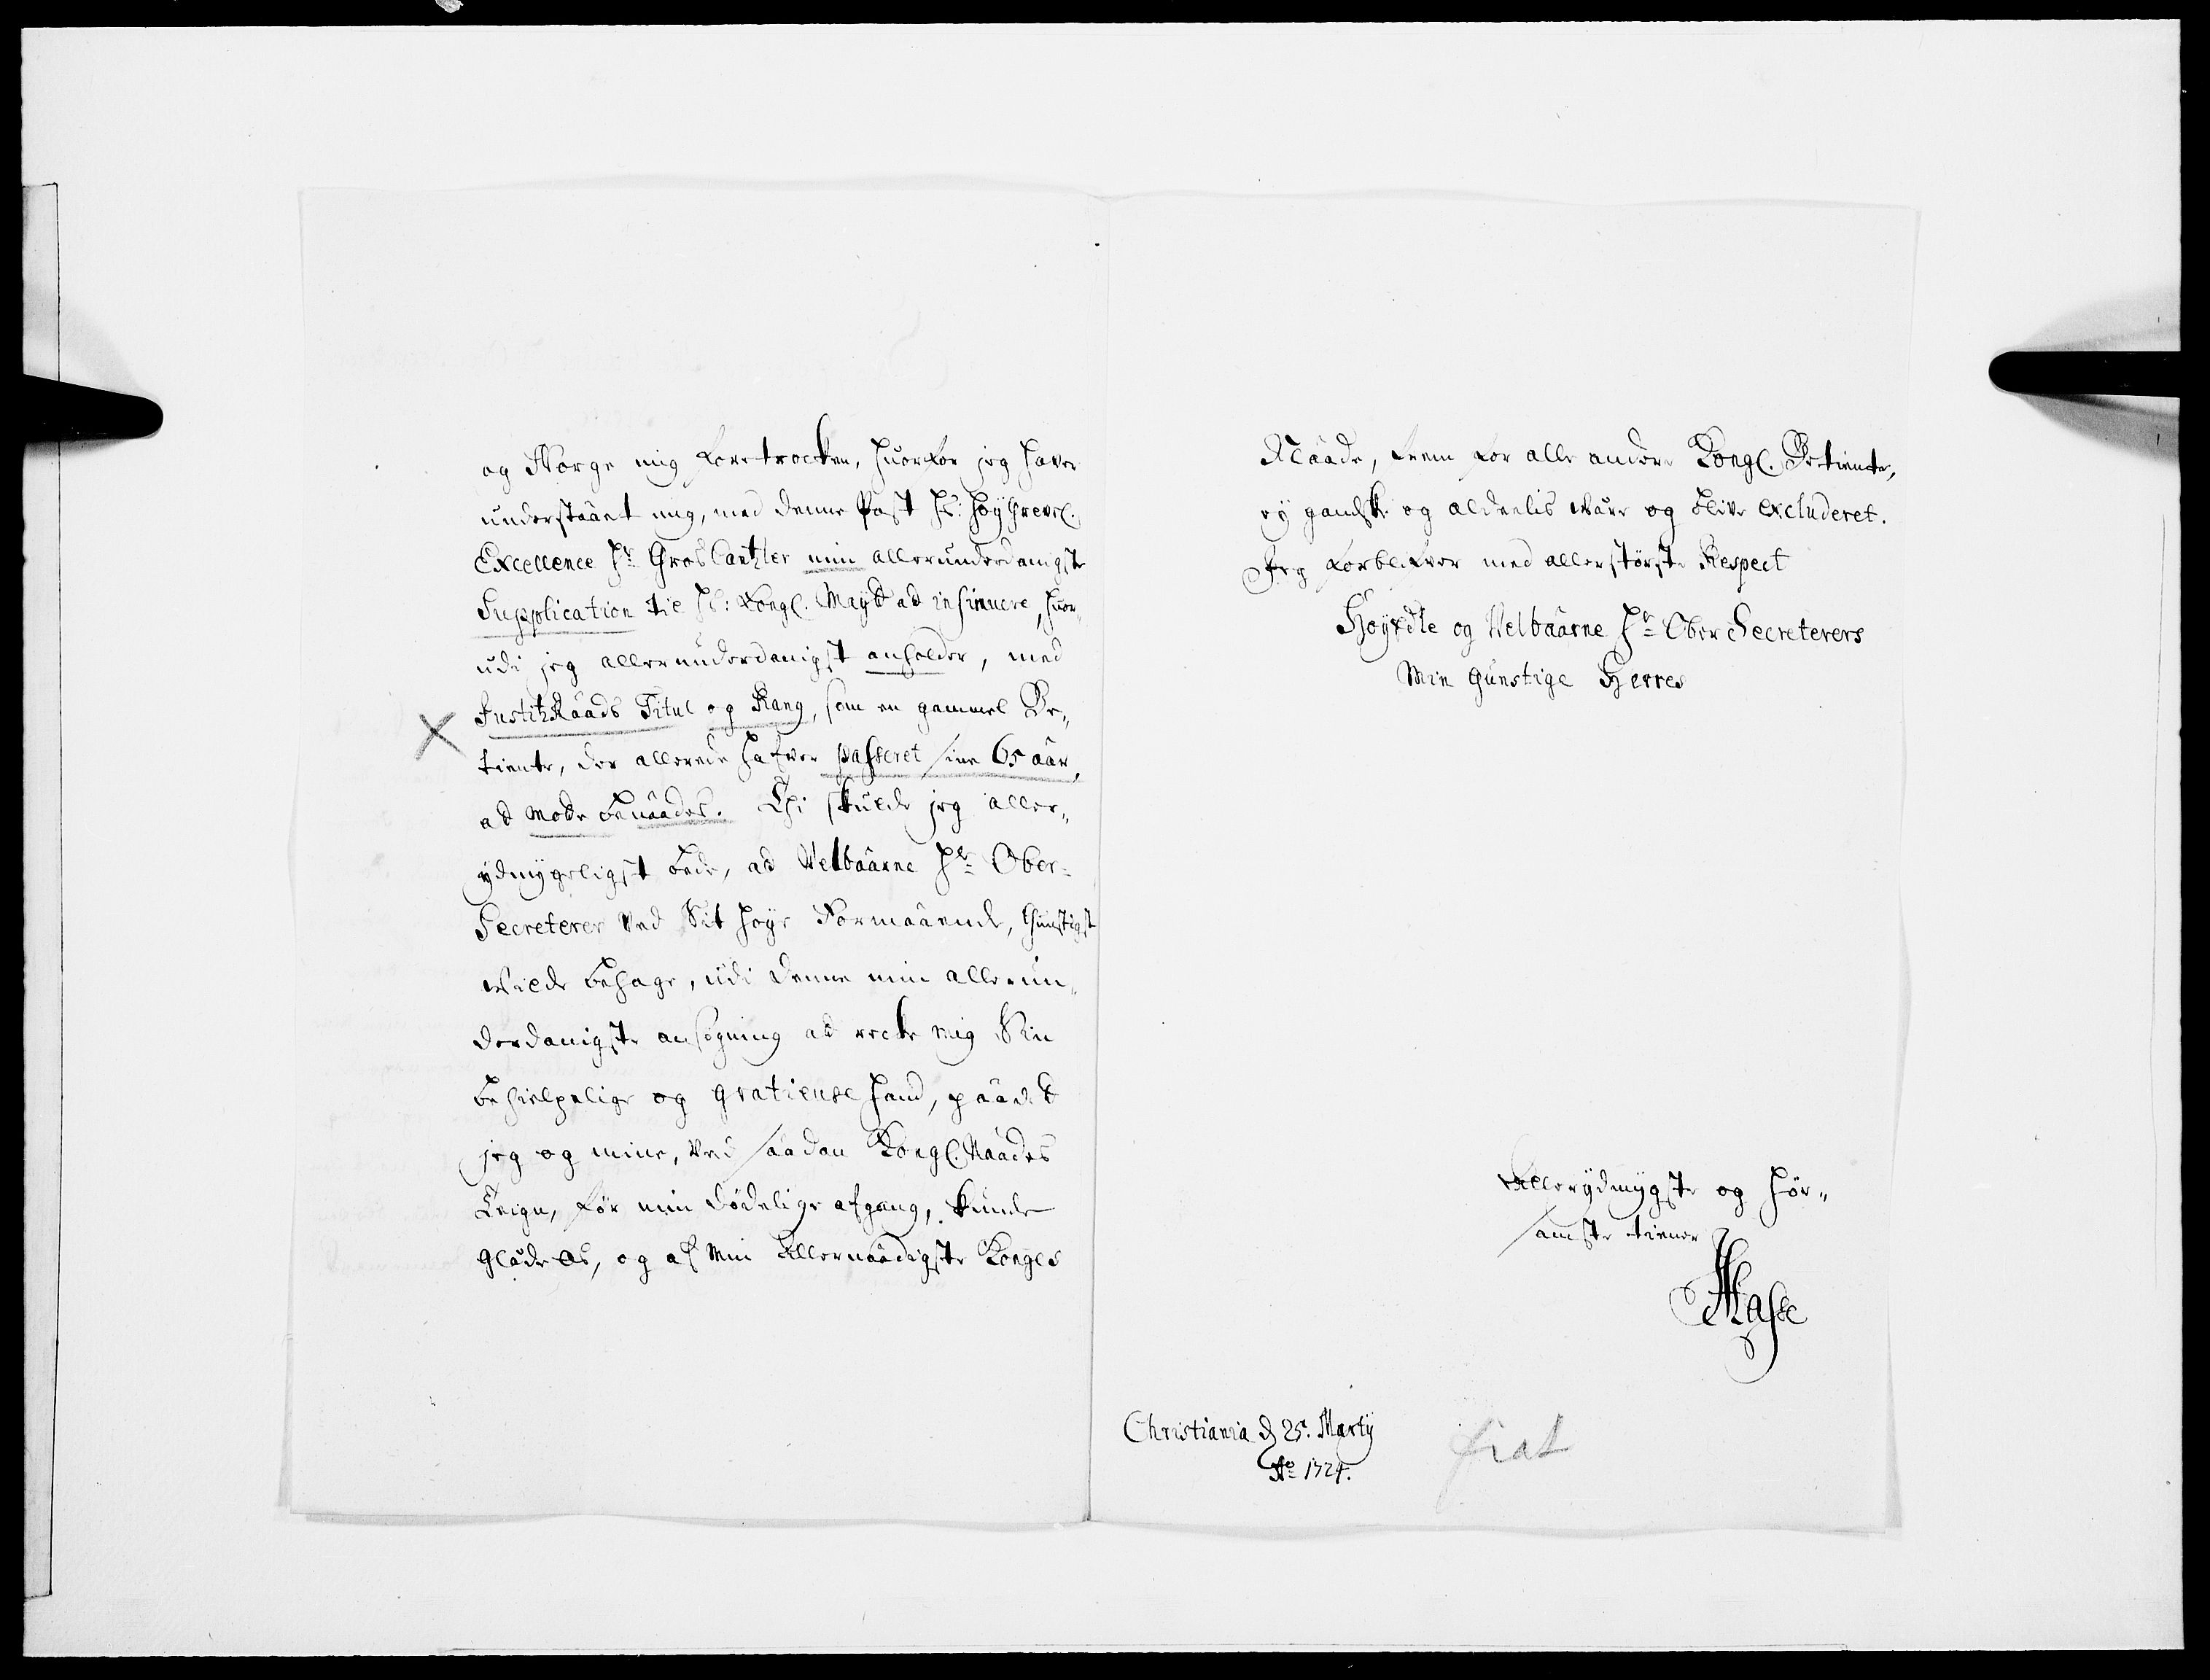 og Norge mig foretrocken, huorfor jeg haver
understaaet mig, med denne Post hs: HøyGrevel.
Excellence Hr GrosCantzler min allerunderdanigste
Supplication til hs: Kongl. Mayt ad insinuere, huor-
udi jeg allerunderdanigst anholder, med
JustitzRaads Titul og Rang, som en gammel Be-
tiente, der allerede hafver passeret sine 65 aar,
ad motte benaades. Thi skulde jeg aller-
ydmygeligst bede, ad Velbaarne Hr Ober-
Secreterer ved Sit høye Formaaende, Gunstigst
vilde behage, udi denne min allerun-
derdanigste ansøgning ad recke mig Sin
behielpelige og gratieuse haand, paa det
jeg og mine, ved saadan Kongl. Naades
Teign, før min dødelige afgang, kunde
glæde os, og af min Allernaadigste Konges
Naade, frem for alle andre Kongl. Betiente,
ey gandske og aldeelis være og blive excluderet.
Jeg forblifver med allerstørste Respect
Høyædle og Velbaarne Hr Ober Secreterers
Min Gunstige Herres
Allerydmygste og hør-
samste tiener
Christiania d 25. Marty
Ao 1724.
fiat